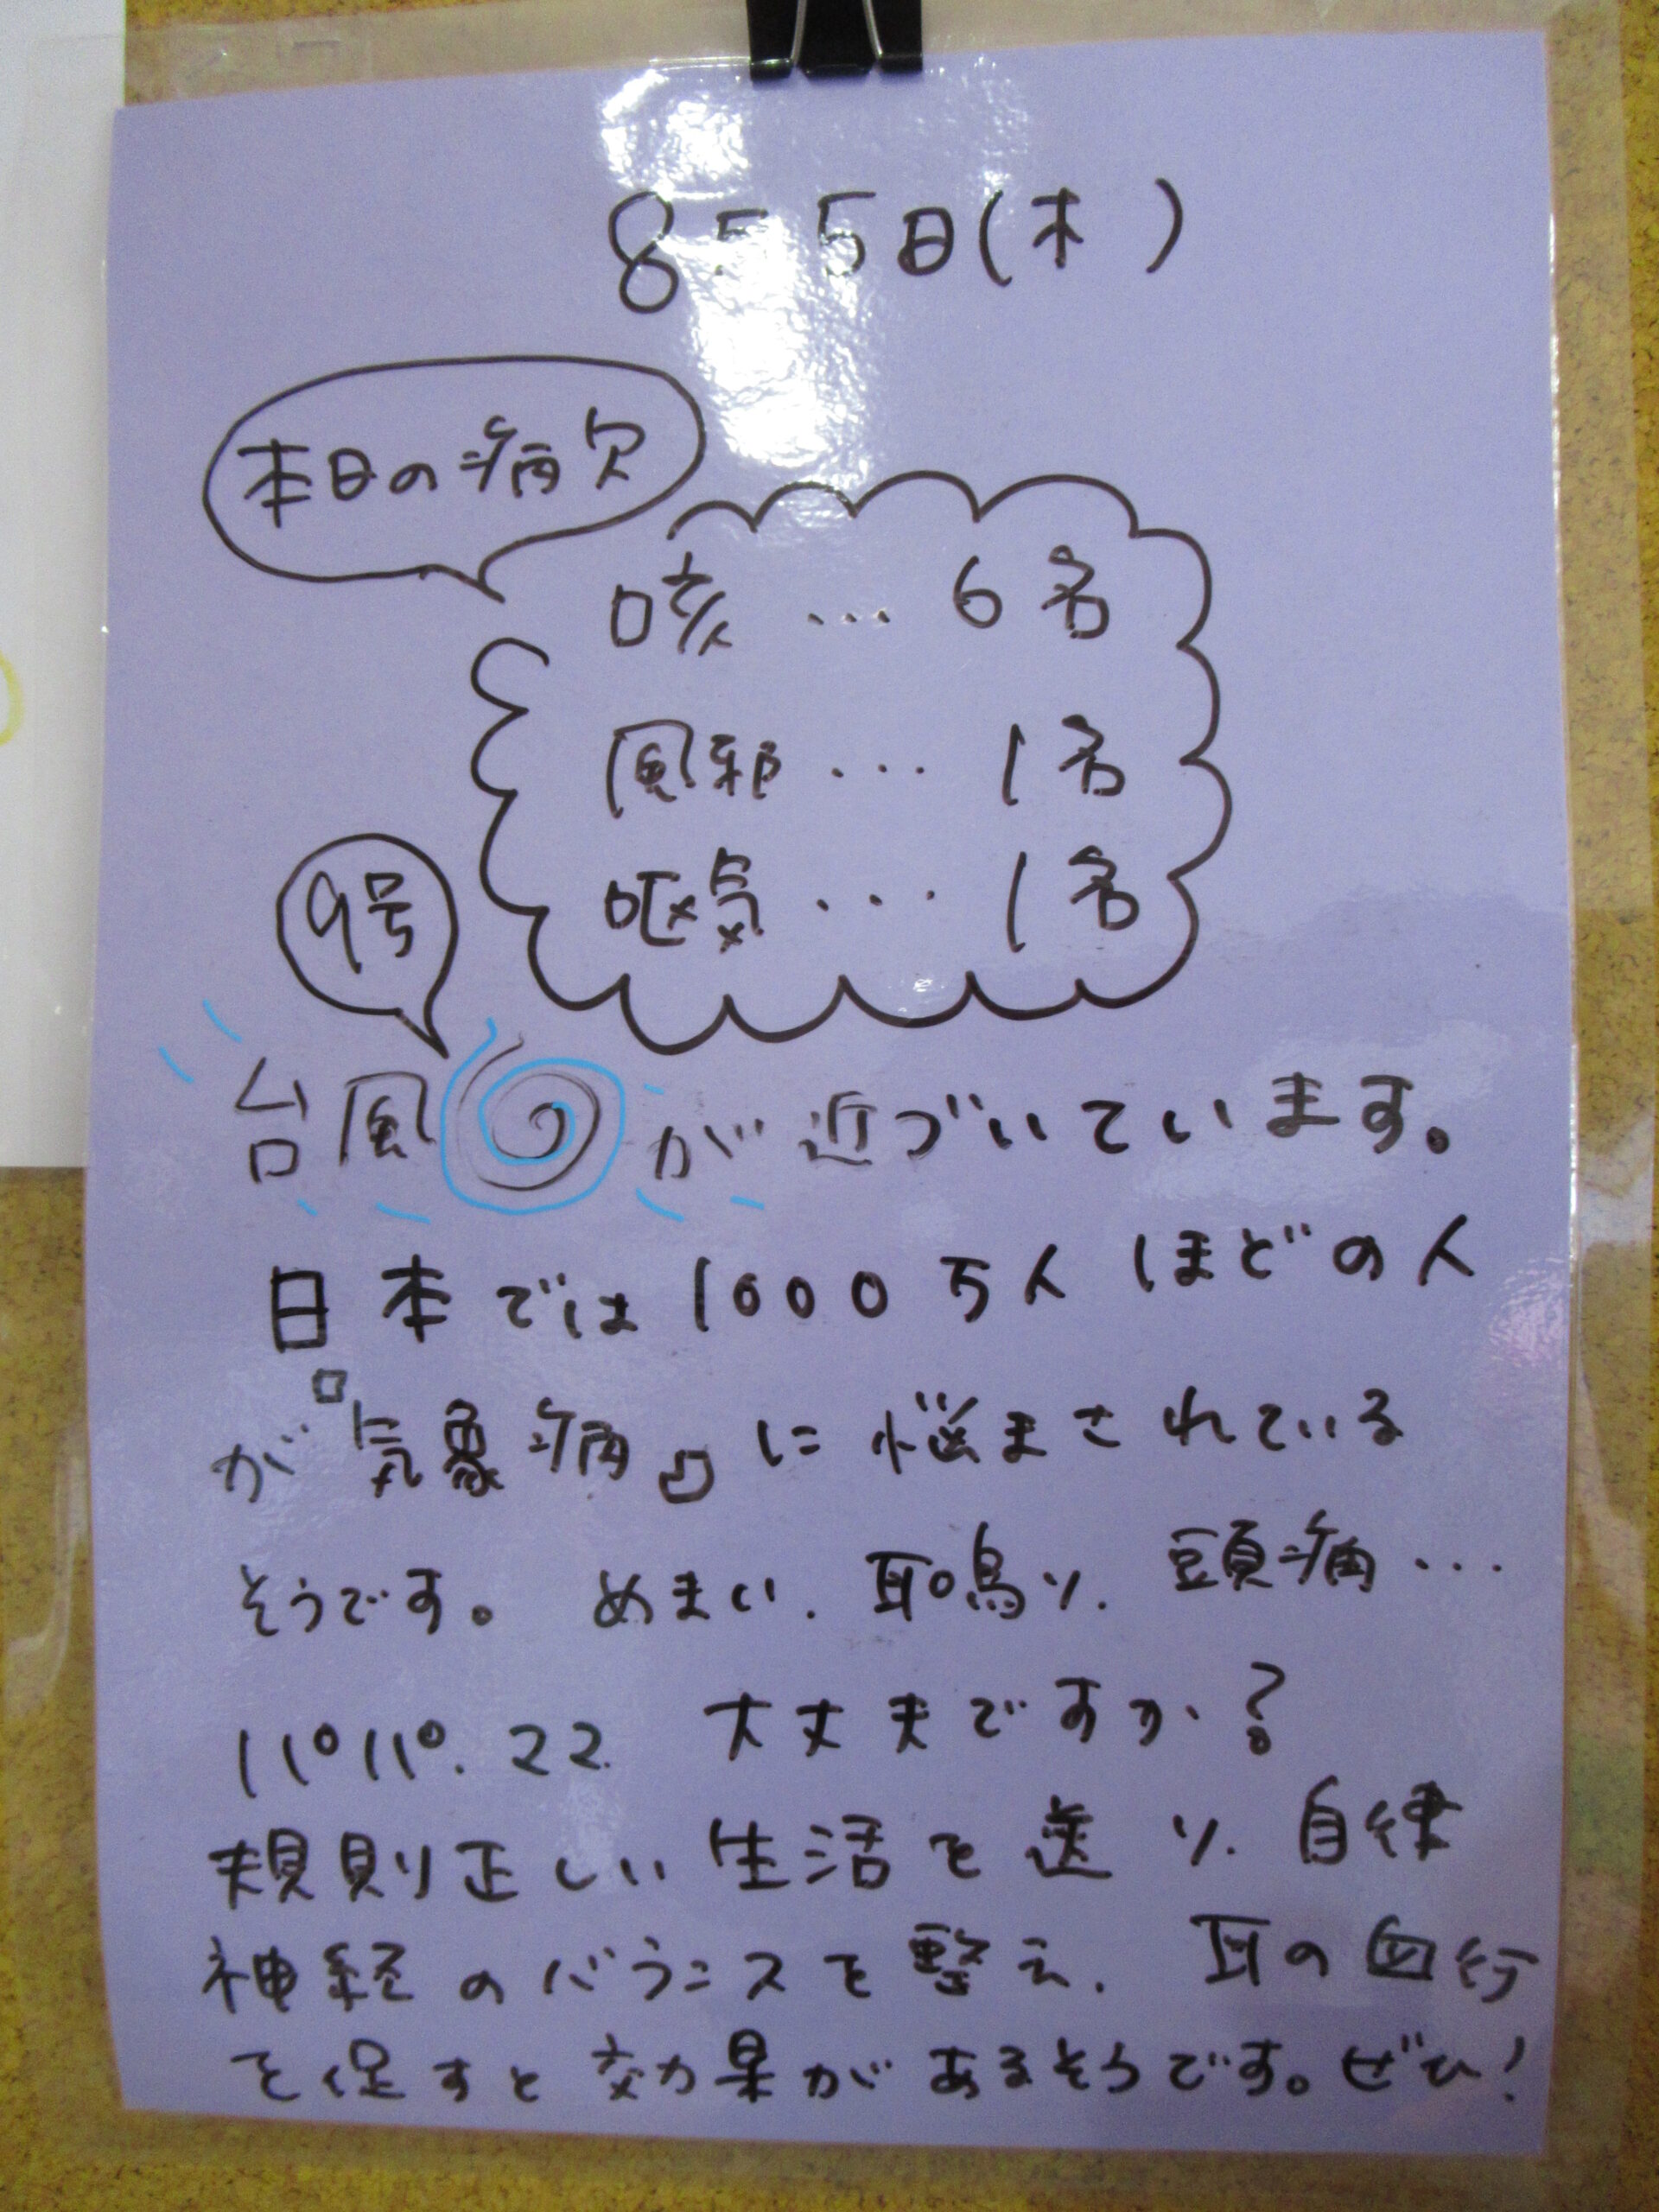 8月5日(木)
本日の病欠
咳 … 6名
風邪 … 1名
嘔気 … 1名
9号
台風 が近づいています。
日本では1000万人ほどの人
が『気象病』に悩まされている
そうです。めまい、耳鳴り、頭痛…
パパ、ママ 大丈夫ですか?
規則正しい生活を送り、自律
神経のバランスを整え、耳の血行
を促すと効果があるそうです。ぜひ!